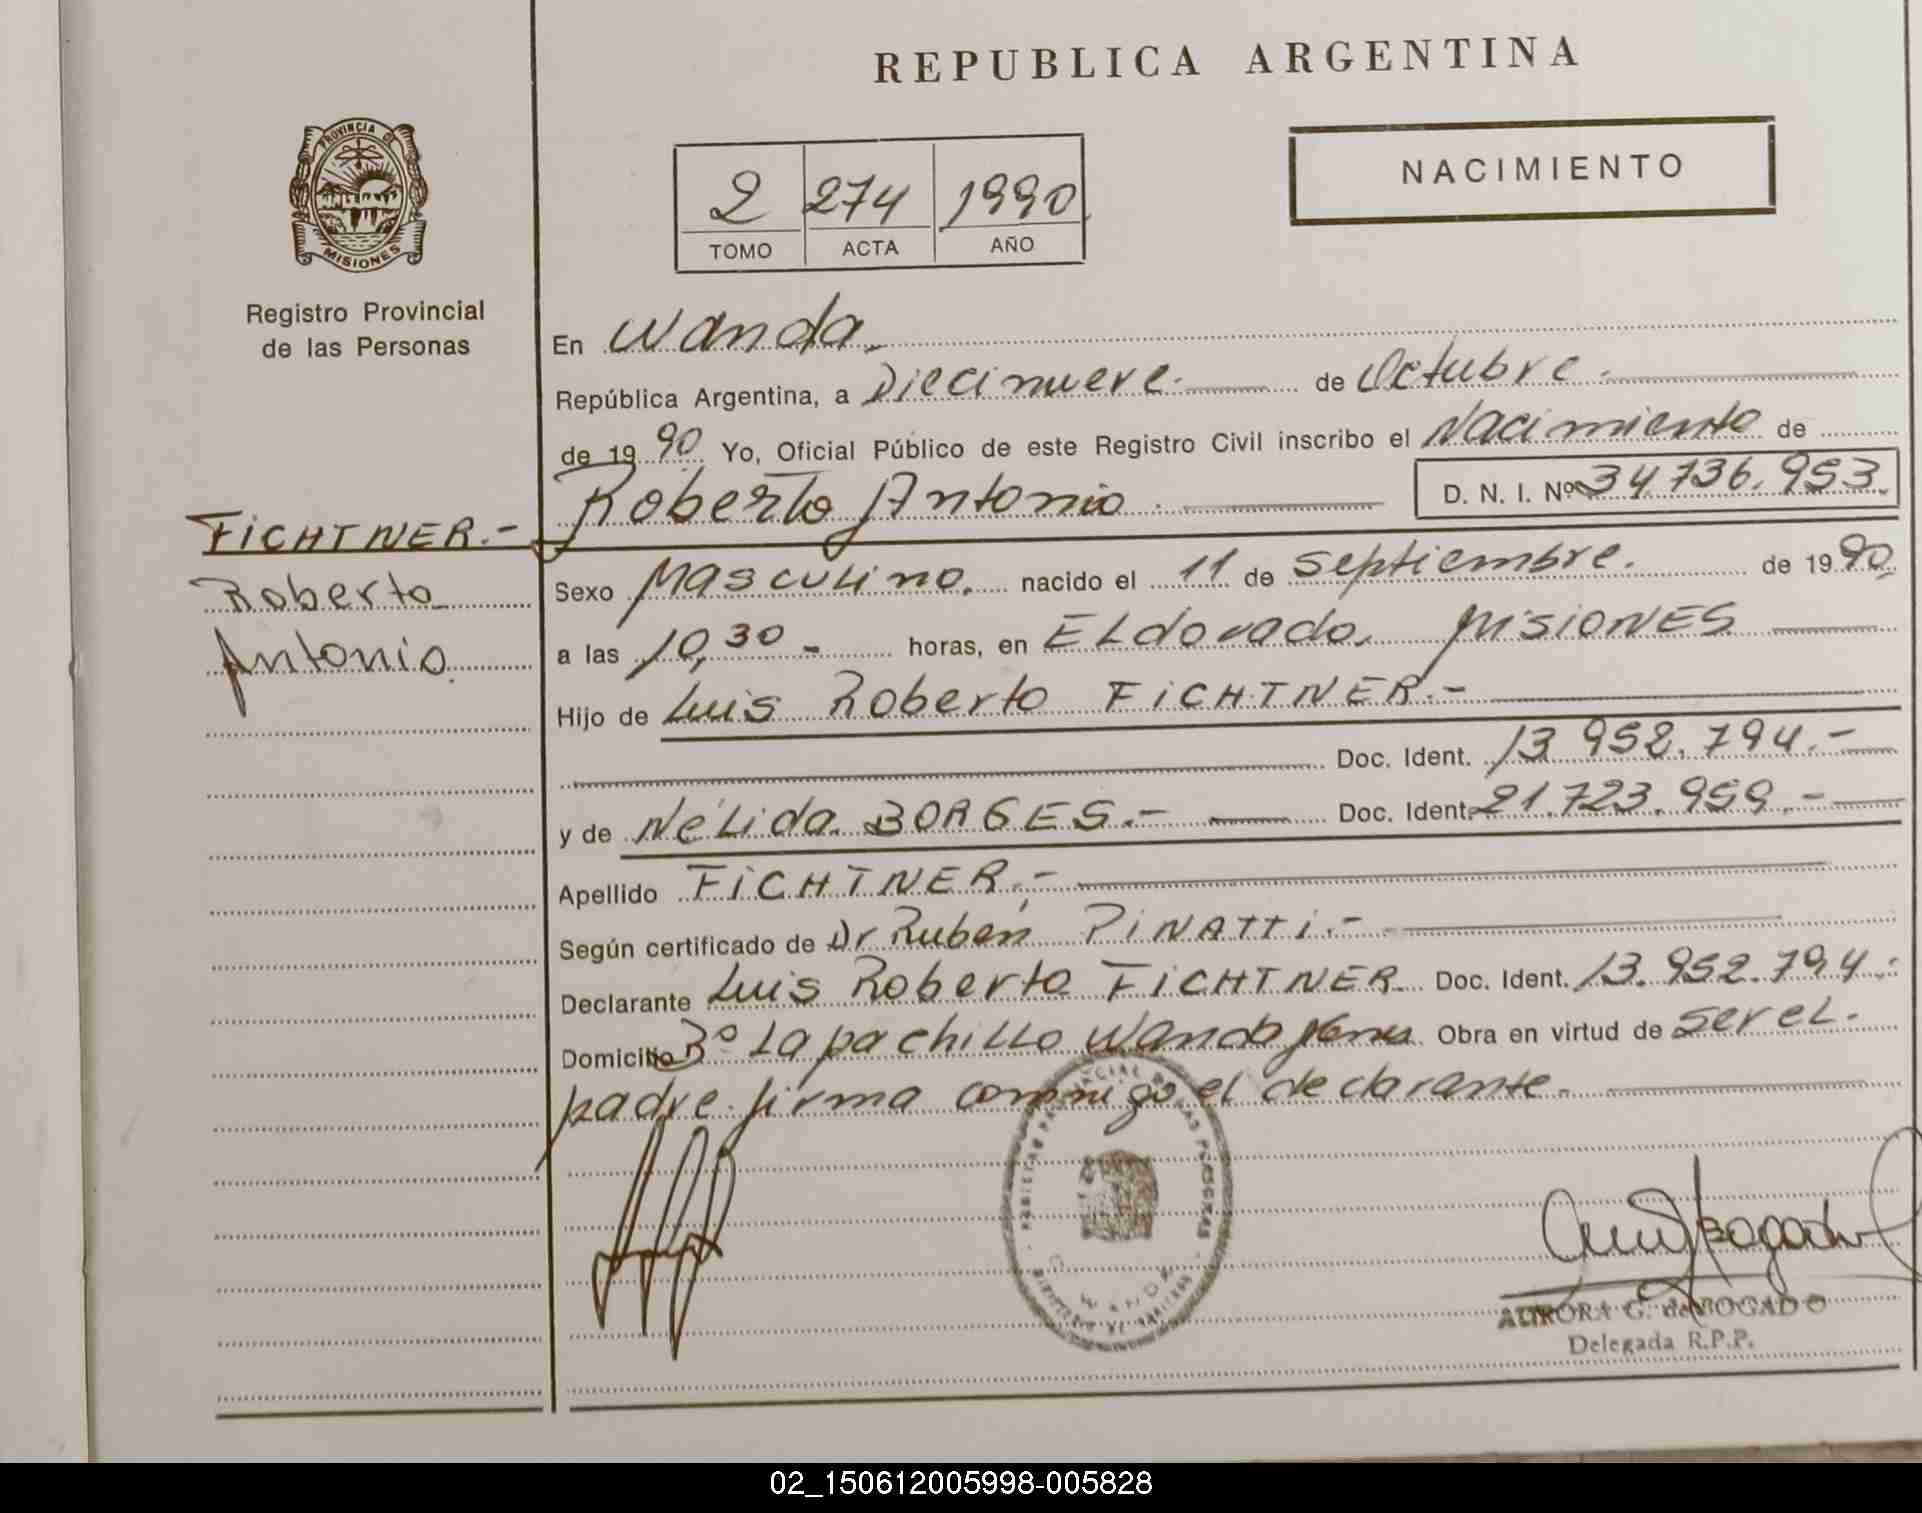 REPUBLICA ARGENTINA
PROVINCIA DE
MISIONES
Registro Provincial
de las Personas
2 274 1990
TOMO ACTA AÑO
NACIMIENTO
En Wanda.
República Argentina, a Diecinueve. de Octubre.
de 1990 Yo, Oficial Público de este Registro Civil inscribo el Nacimiento de
Roberto Antonio. D. N. I. Nº 34.736.953.
FICHTNER.-
Roberto
Antonio.
Sexo Masculino. nacido el 11 de septiembre. de 1990
a las 10,30- horas, en ELdorado. MISIONES
Hijo de Luis Roberto FICHTNER.-
Doc. Ident. 13.952.794.-
y de NéLida BORGES.- Doc. Ident. 21.723.959.-
Apellido FICHTNER.-
Según certificado de Dr Rubén PINATTI.-
Declarante Luis Roberto FICHTNER. Doc. Ident. 13.952.794.-
Domicilio Bº Lapachillo Wanda Obra en virtud de ser eL.
padre. firma conmigo el declarante.
WANDA
AURORA G. de BOGADO
Delegada R.P.P.
02_150612005998-005828